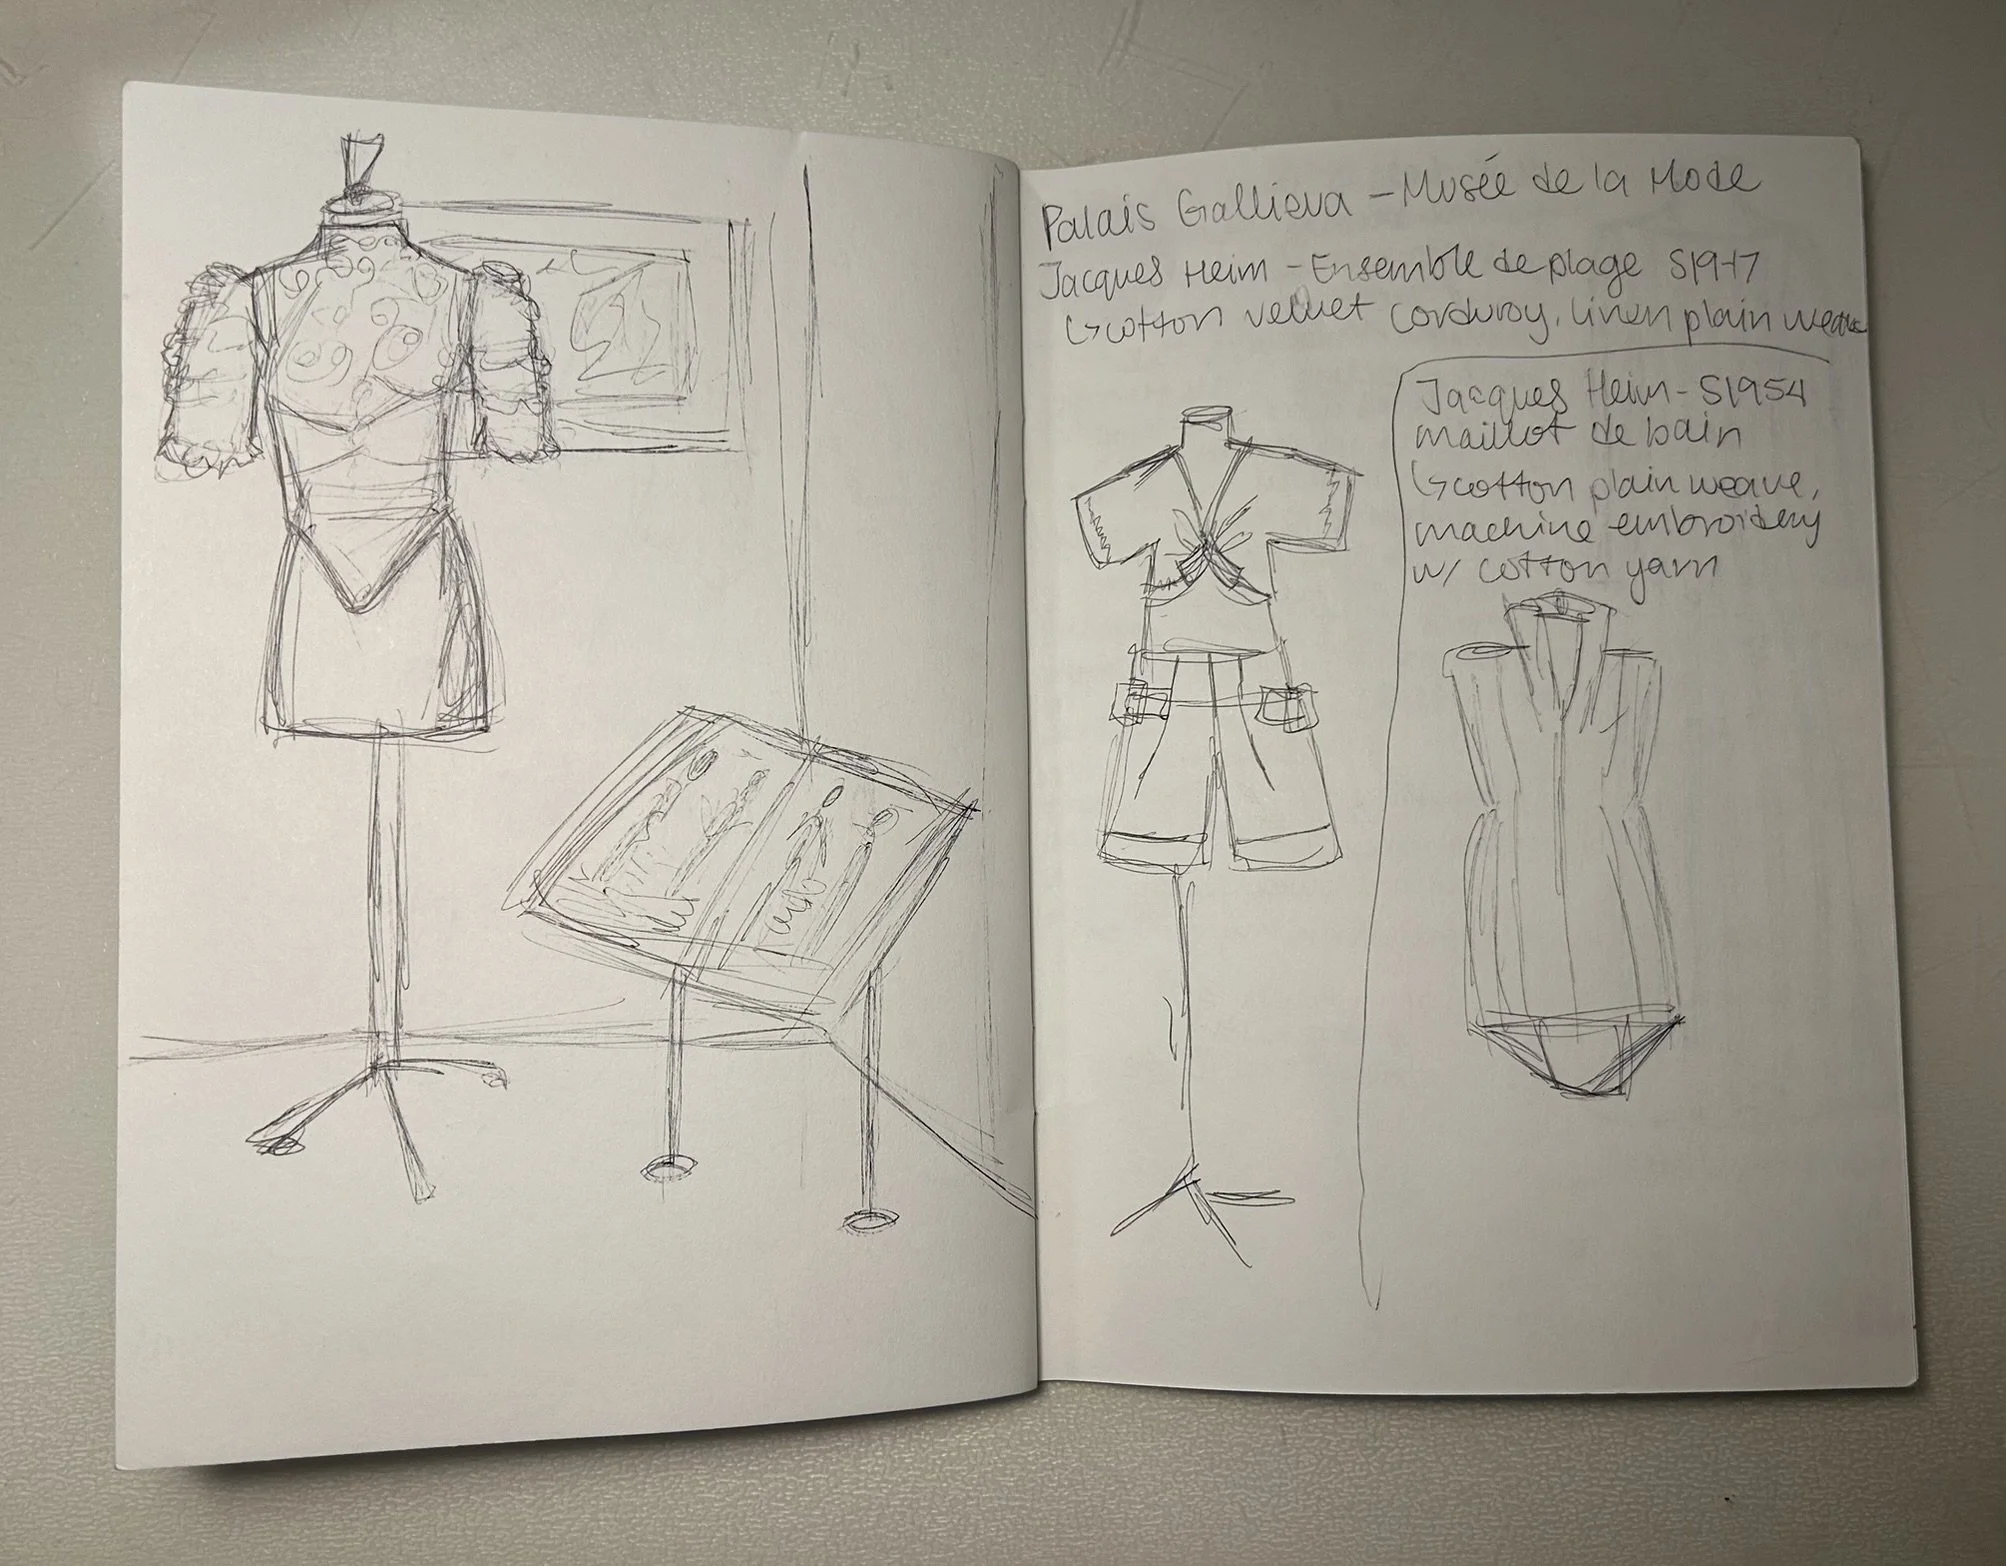 Palais Galliera – Musée de la Mode
Jacques Heim – Ensemble de plage S1947
↳ cotton velvet corduroy, linen plain weave
Jacques Heim – S1954
maillot de bain
↳ cotton plain weave,
machine embroidery
w/ cotton yarn